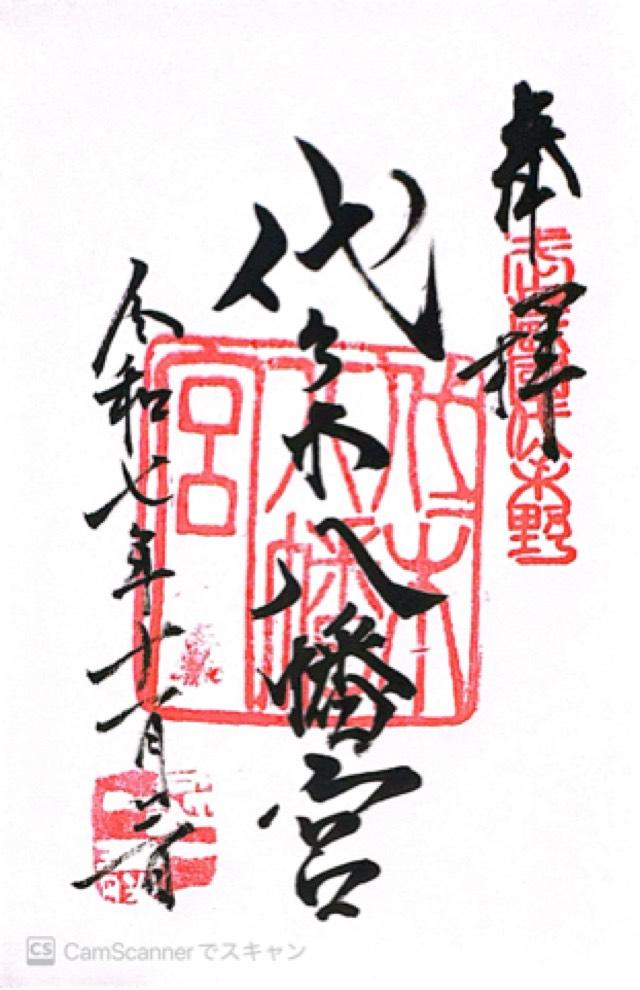 奉拝
武蔵国代々木野
代々木八幡宮
代々木
八幡
宮
令和七年十一月
CS CamScannerでスキャン